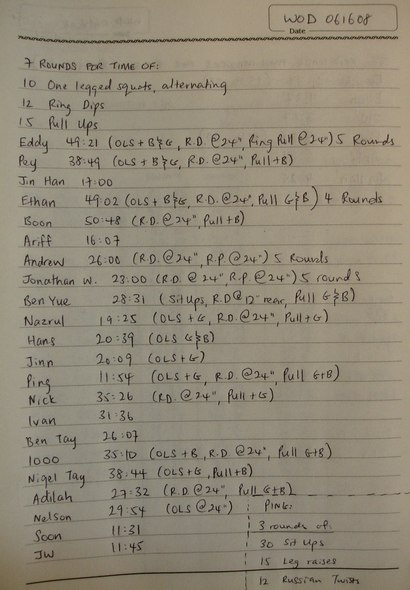 WOD 061608
Date
7 ROUNDS FOR TIME OF:
10 One legged squats, alternating
12 Ring Dips
15 Pull Ups
Eddy 49:21 (OLS + B&G, R.D. @24", Ring Pull @24") 5 Rounds
Pey 38:49 (OLS + B&G, R.D. @24", Pull+B)
Jin Han 17:00
Ethan 49:02 (OLS + B&G, R.D. @24", Pull G&B) 4 Rounds
Boon 50:48 (R.D. @24", Pull+B)
Ariff 16:07
Andrew 26:00 (R.D. @24", R.P. @24") 5 Rounds
Jonathan W. 23:00 (R.D. @24", R.P. @24") 5 rounds
Ben Yue 28:31 (Sit Ups, R.D @ 12" rear, Pull G&B)
Nazrul 19:25 (OLS + G, R.D. @24", Pull+G)
Hans 20:39 (OLS G&B)
Jinn 20:09 (OLS+G)
Ping 11:54 (OLS+G, R.D. @24", Pull G+B)
Nick 35:26 (RD. @24", Pull+G)
Ivan 31:36
Ben Tay 26:07
1000 35:10 (OLS + B, R.D. @24", Pull G+B)
Nigel Tay 38:44 (OLS+G, Pull+B)
Adilah 27:32 (R.D. @24", Pull G+B)
Nelson 29:54 (OLS @24")
Soon 11:31
JW 11:45
PING:
3 rounds of:
30 Sit Ups
15 Leg raises
12 Russian Twists